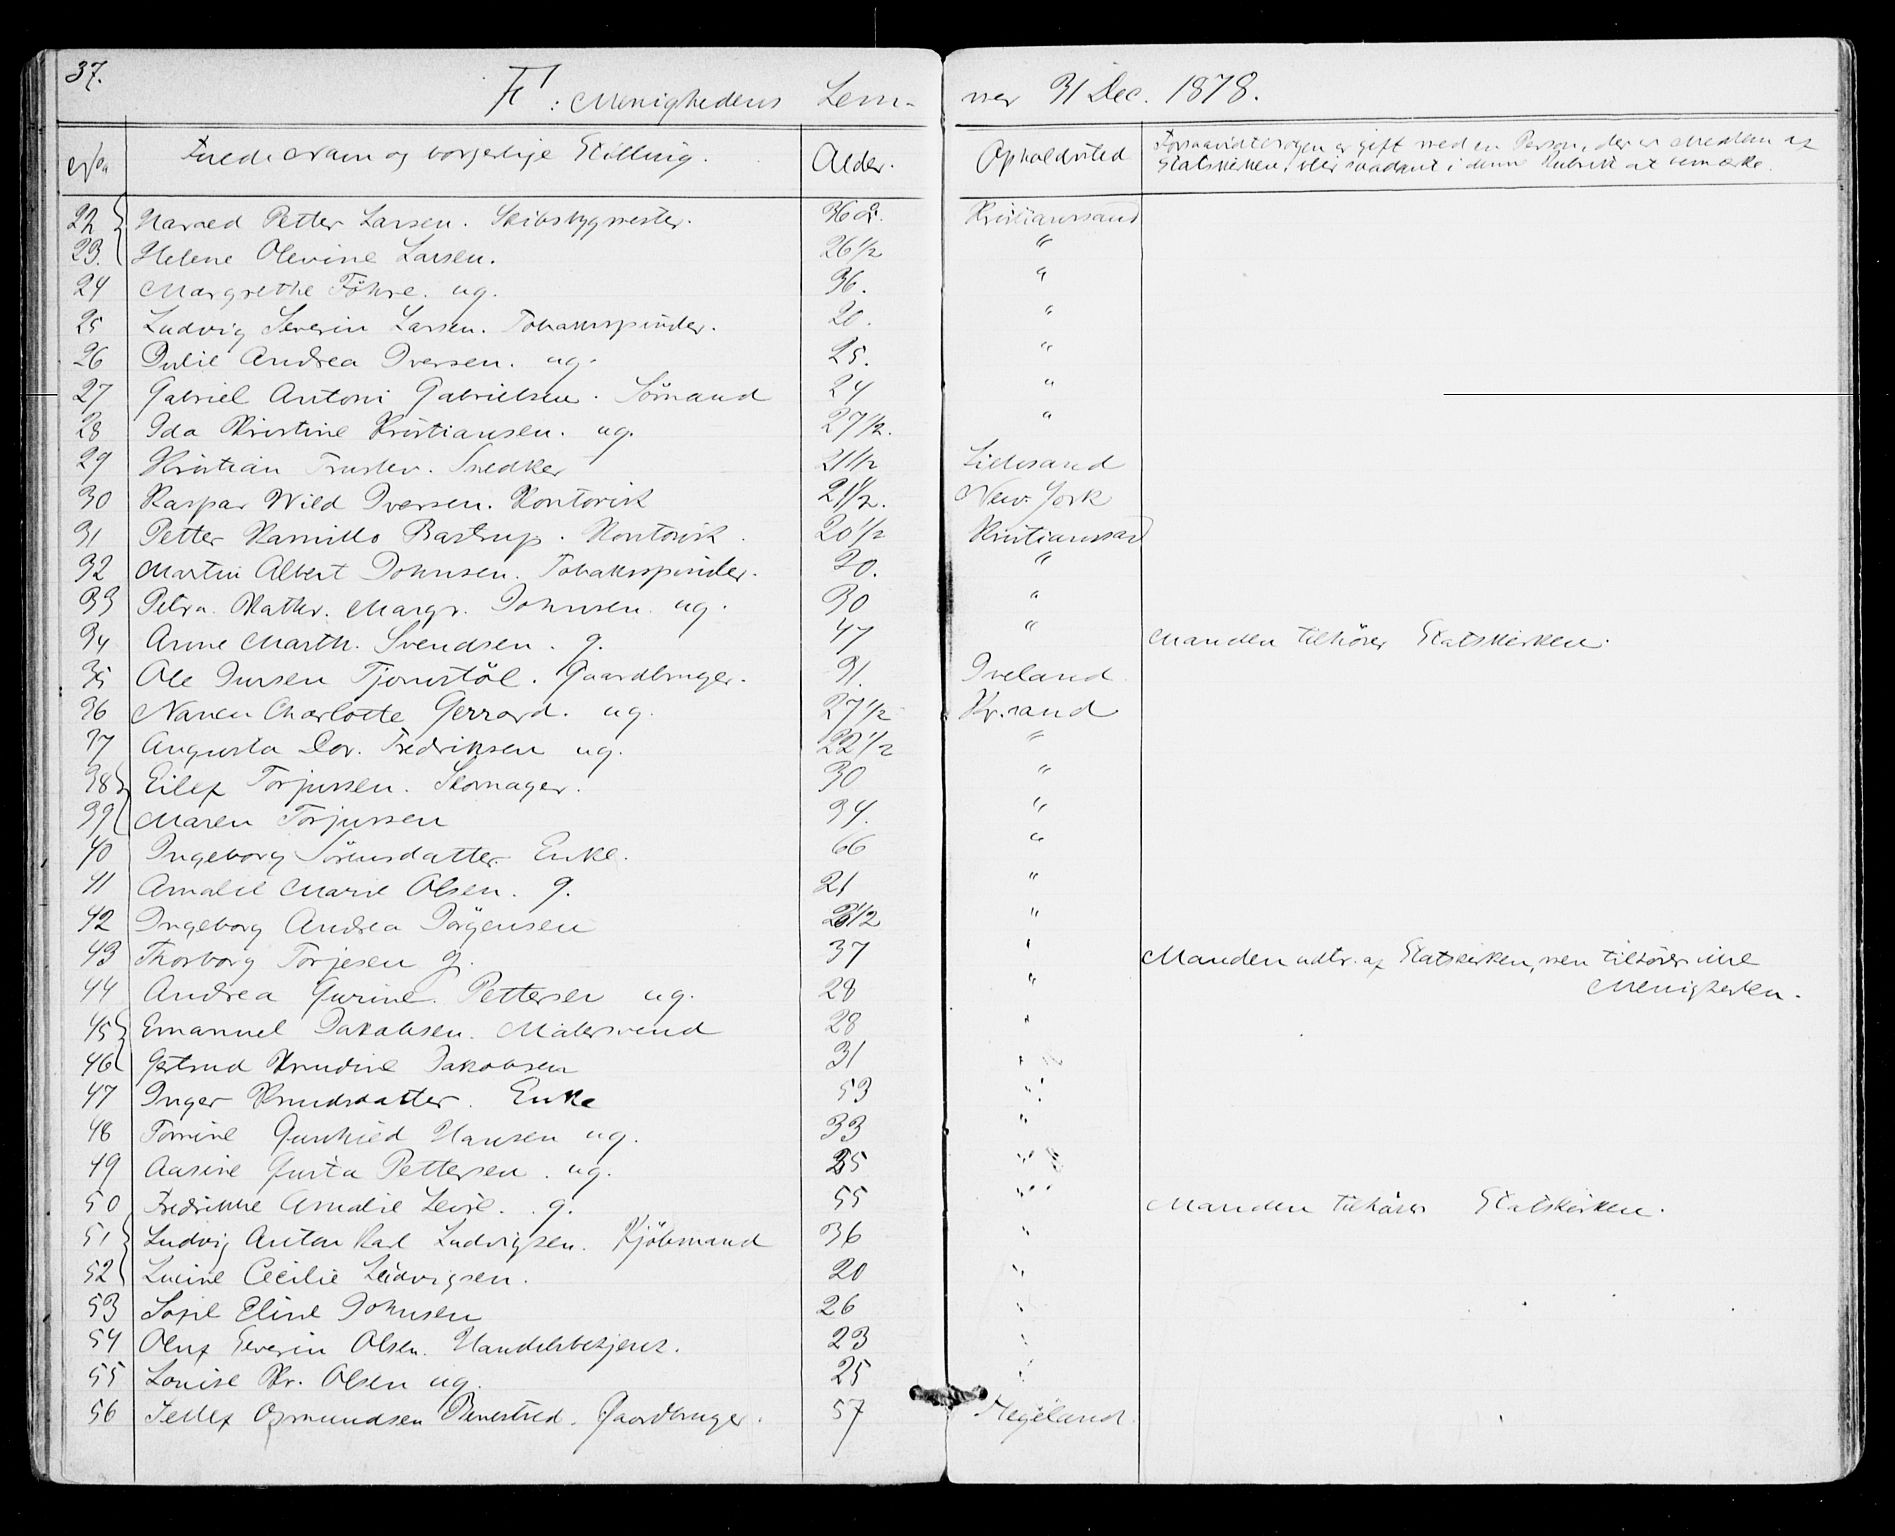 37.
F: Menighedens Lem- mer 31 Dec. 1878.
No. Fulde Navn og borgerlige Stilling. Alder. Opholdssted Forsaavidt Nogen er gift med en Person, der er Medlem af
Statskirken, bliver saadant i denne Rubrik at bemærke.
22 Harald Petter Larsen. Skibsbygmester. 36 Kristianssand
23. Helene Olevine Larsen. 26 1/2 "
24 Margrethe Föhre. ug. 36. "
25 Ludvig Severin Larsen. Tobaksspinder. 20. "
26 Julie Andrea Iversen. ug. 25. "
27 Gabriel Antoni Gabrielsen. Sömand 24 "
28 Ida Kristine Kristiansen. ug. 27 1/2. "
29 Kristian Snedker 21 1/2 Lillesand
30 Kaspar Wild Iversen. Kontorist 21 1/2. New-York
31 Petter Kamillo Bastrup. Kontorist. 20 1/2 Kristianssand
32 Martin Albert Johnsen. Tobaksspinder. 30. "
33 Petra. Kathr. Margr. Johnsen. ug. 30 "
34 Anne Marth. Svendsen. g. 47 " Manden tilhörer Statskirken.
35 Ole Jensen Gaardbruger. 31. Iveland
36 Nancu Charlotte Gerrard. ug. 27 1/2 Kr.sand
37 Augusta Dor. Fredriksen ug. 22 1/2 "
38 Eilef Torjussen. Skomager. 30 "
39 Maren Torjussen 34. "
40 Ingeborg Sörensdatter Enke. 66 "
41 Amalie Marie Olsen. g. 21 "
42 Ingeborg Andrea Jörgensen 1/2 "
43 Thorborg Torjesen g. 37 " Manden udtr. af Statskirken, men tilhörer ikke
Menigheden.
44 Andrea Gurine. Pettersen ug. 28 "
45 Emanuel Jakobsen. Malersvend 28 "
46 Gertrud Knudine Jakobsen 31 "
47 Inger Knudsdatter. Enke 53 "
48 Tomine Gunhild Hansen ug. 33 "
49 Aasine Gurta Pettersen. ug. 35 "
50 Fredrikke Amalie Leire. g. 55 " Manden tilhörer Statskirken.
51 Ludvig Anton Karl Ludvigsen. Kjöbmand 36 "
52 Lucine Cecilie Ludvigsen. 20 "
53 Sofie Eline Johnsen 26 "
54 Oluf Severin Olsen. Handelsbetjent. 23 "
55 Louise Kr. Olsen ug. 25 "
56 Tellef Osmundsen Gaardbruger. 57 Hegeland.